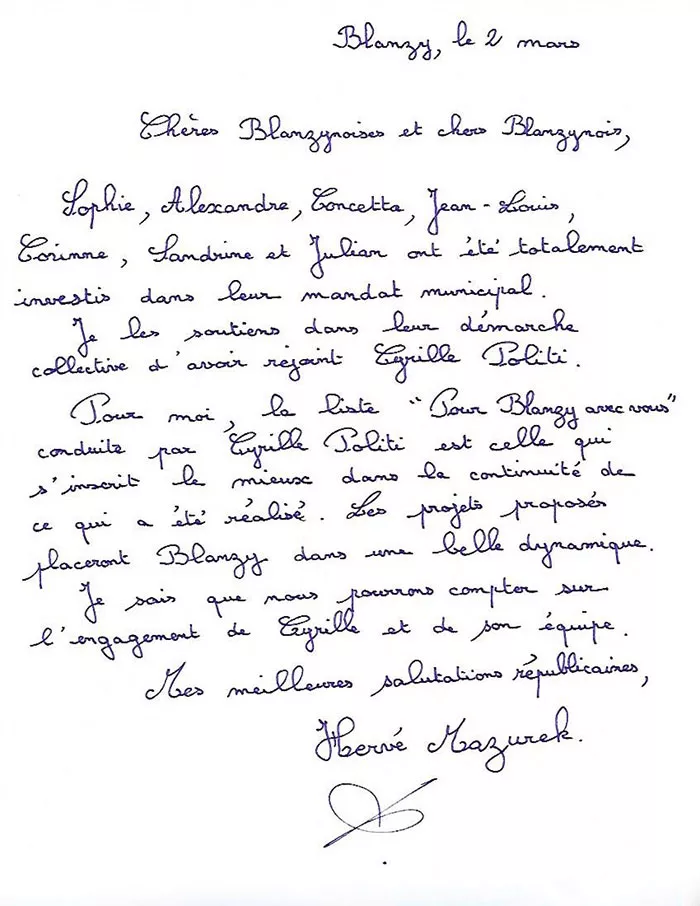 Blanzy, le 2 mars
Chères Blanzynoises et chers Blanzynois,
Sophie, Alexandre, Concetta, Jean-Louis,
Corinne, Sandrine et Julian ont été totalement
investis dans leur mandat municipal.
Je les soutiens dans leur démarche
collective d'avoir rejoint Cyrille Politi.
Pour moi, la liste "Pour Blanzy avec vous"
conduite par Cyrille Politi est celle qui
s'inscrit le mieux dans la continuité de
ce qui a été réalisé. Les projets proposés
placeront Blanzy dans une belle dynamique.
Je sais que nous pourrons compter sur
l'engagement de Cyrille et de son équipe.
Mes meilleures salutations républicaines,
Hervé Mazurek.